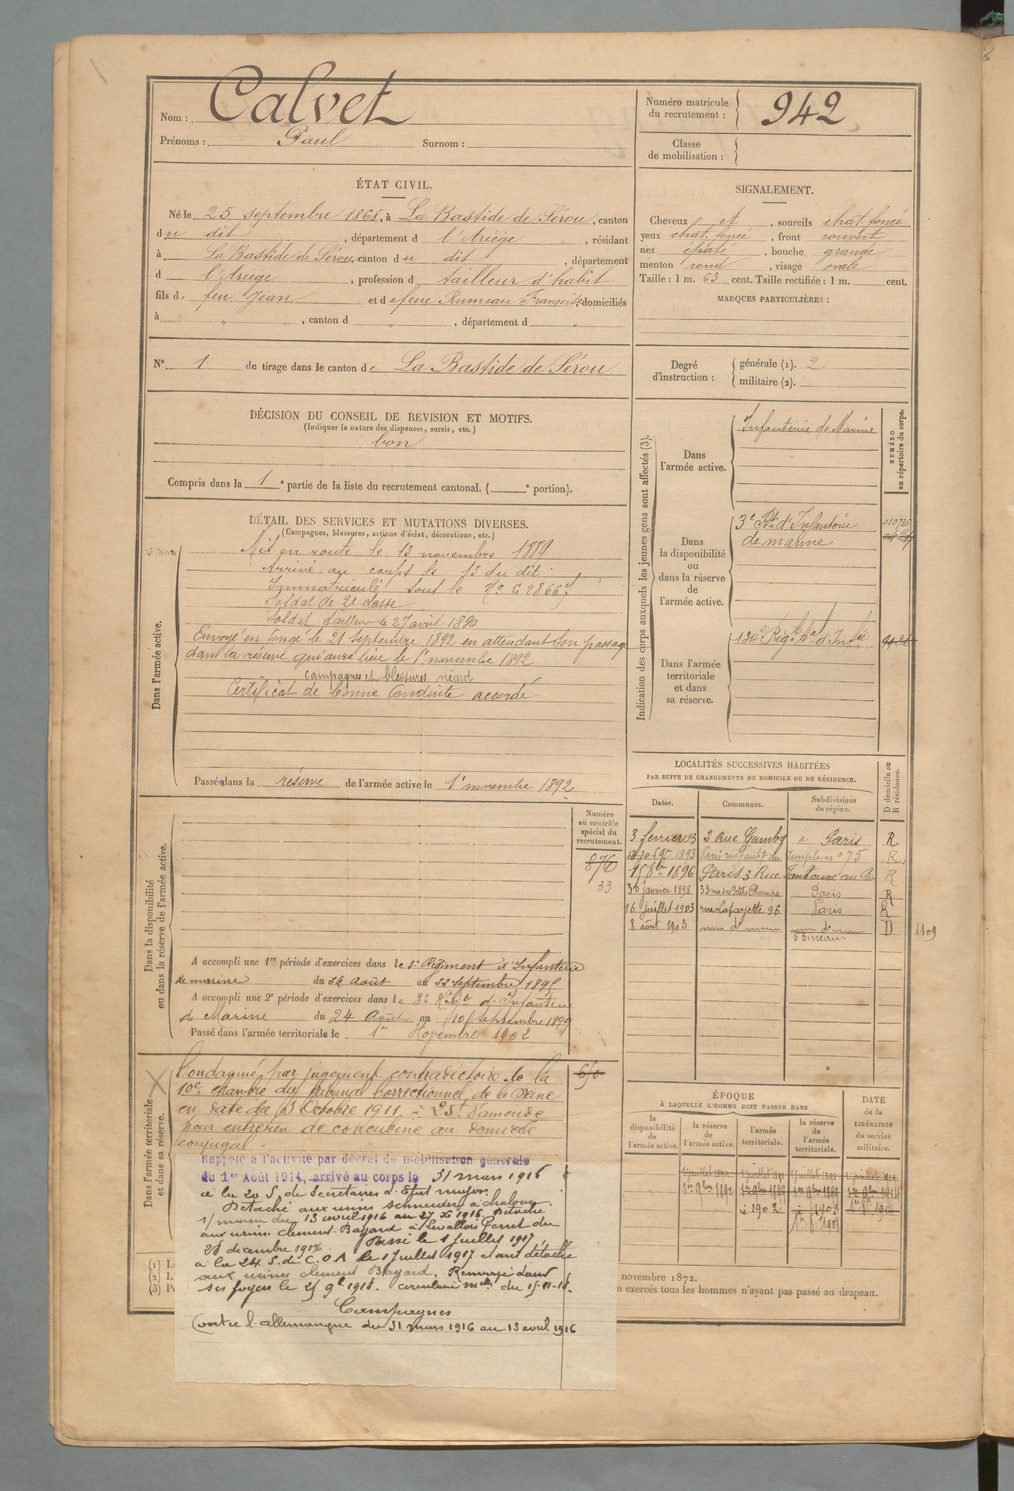 Nom : Calvet
Prénoms : Paul Surnom :
Numéro matricule
du recrutement : 942
Classe
de mobilisation :
ÉTAT CIVIL.
Né le 25 septembre 1868, à La Bastide de Sérou, canton
du dit, département d l'Ariège, résidant
à La Bastide de Sérou, canton du dit, département
d l'Ariège, profession d tailleur d'habit
fils de feu Jean et de feue Rumeau Françoise, domiciliés
à " , canton d " , département d "
SIGNALEMENT.
Cheveux et , sourcils chat. foncé
yeux chat. foncé , front couvert
nez épaté , bouche grande
menton rond , visage ovale
Taille : 1 m. 63 cent. Taille rectifiée : 1 m. cent.
MARQUES PARTICULIÈRES :
N° 1 de tirage dans le canton de La Bastide de Sérou
Degré
d'instruction :
générale (1). 2
militaire (2).
DÉCISION DU CONSEIL DE REVISION ET MOTIFS.
(Indiquer la nature des dispenses, sursis, etc.)
bon
Compris dans la 1e partie de la liste du recrutement cantonal. ( e portion).
DÉTAIL DES SERVICES ET MUTATIONS DIVERSES.
(Campagnes, blessures, actions d'éclat, décorations, etc.)
Dans l'armée active.
Mis en route le 13 novembre 1889
Arrivé au corps le 13 du dit.
Immatriculé sous le
Soldat de 2e classe
Soldat tailleur le 27 avril 1890
Envoyé en congé le 21 septembre 1892 en attendant son passage
dans la réserve qui aura lieu le 1er novembre 1892
Campagnes et blessures néant
Certificat de bonne conduite accordé
Passé dans la réserve de l'armée active le 1er novembre 1892
Indication des corps auxquels les jeunes gens sont affectés (3).
NUMÉRO
au répertoire du corps.
Dans
l'armée active.
Infanterie de Marine
Dans
la disponibilité
ou
dans la réserve
de
l'armée active.
3e Rt d'Infanterie
de marine
Dans l'armée
territoriale
et dans
sa réserve.
134e Régt
LOCALITÉS SUCCESSIVES HABITÉES
PAR SUITE DE CHANGEMENTS DE DOMICILE OU DE RÉSIDENCE.
D domicile ou
R résidence.
Dates. Communes. Subdivisions
de région.
3 février 93 2 Rue Gambey à Paris R
1893 Paris R
1896 Paris 3 Rue R
30 janvier 1898 33 rue des Petits Champs Paris R
16 juillet 1903 rue Lafayette 96 Paris R
8 août 1903 d° d° D 1109
5e Bureau
Dans la disponibilité
ou dans la réserve de l'armée active.
Numéro
au contrôle
spécial du
recrutement.
876
33
A accompli une 1re période d'exercices dans le Régiment d'Infanterie
de marine du 26 Août au 22 septembre 1895
A accompli une 2e période d'exercices dans le 3e Régt d'Infanterie
de Marine du 24 Août au 10 septembre 1899
Passé dans l'armée territoriale le 1er Novembre 1902
Dans l'armée territoriale
et dans sa réserve.
Condamné par jugement contradictoire de la
10e chambre du tribunal correctionnel de la Seine
en date du 13 Octobre 1911, à 25f d'amende
pour entretien de concubine au domicile
conjugal.
Rappelé à l'activité par décret de mobilisation générale
du 1er Août 1914, arrivé au corps le 31 mars 1916
à la 20 S. de Secrétaires d'État major.
Détaché aux usines Schneider à Chalon
s/ marne du 13 avril 1916 au 27 Xe 1916. Détaché
aux usines Clement Bayard à Levallois Perret du
28 decembre 1916. Passé le 1 juillet 1917
à la 24 S. de C.O.A. le 1 juillet 1917 étant détaché
aux usines Clement Bayard. Renvoyé dans
ses foyers le
Campagnes
Contre l'allemagne du 31 mars 1916 au 13 avril 1916
ÉPOQUE
À LAQUELLE L'HOMME DOIT PASSER DANS
DATE
de la
LIBÉRATION
du service
militaire.
la
disponibilité
de
l'armée active.
la réserve
de
l'armée active.
l'armée
territoriale.
la réserve
de
l'armée
territoriale.
1er 9bre 1892
à 1902 à 1908
(1)
(2)
(3)
novembre 1872.
n exercés tous les hommes n'ayant pas passé au drapeau.